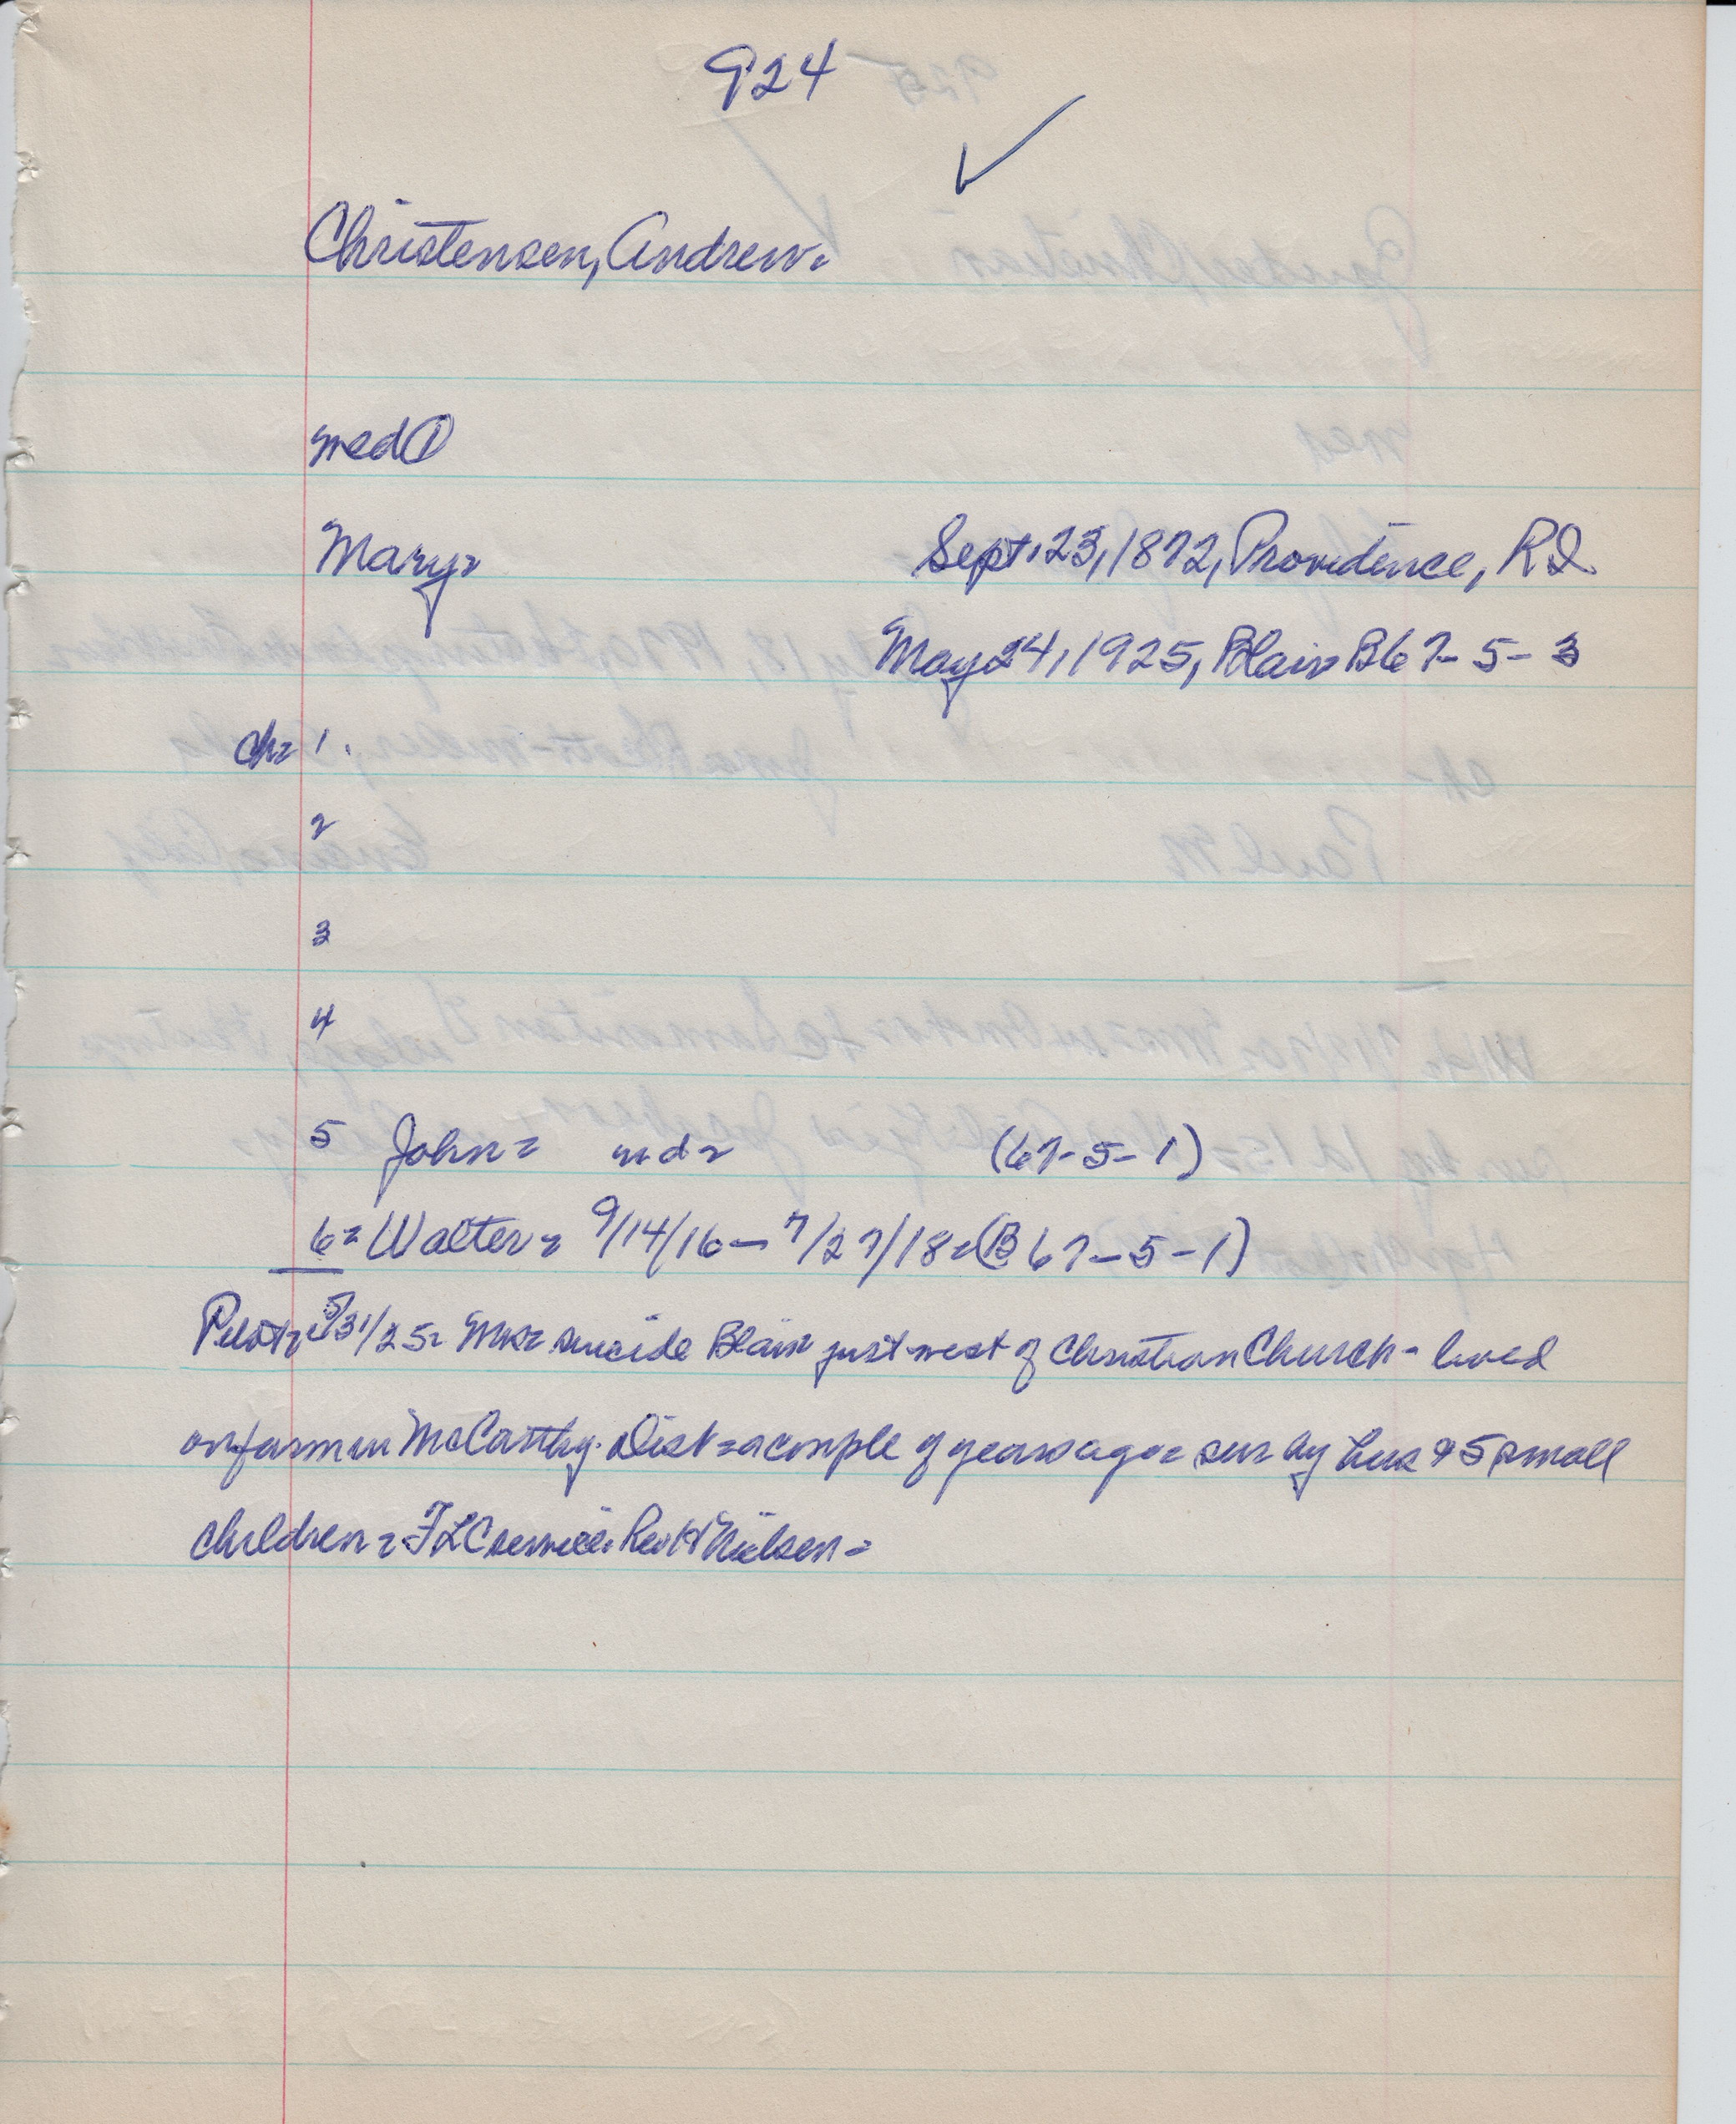 924
✓
Christensen, Andrew.
med ①
Mary= Sept. 23, 1872, Providence, R I.
May 24, 1925, Blair B67-5-3
ch= 1.
2
3
4
5 John= nd= (67-5-1)
6= Walter= 9/14/16 - 7/27/18=(B67-5-1)
Pilot= 5/31/25= Mrs= suicide Blair just west of Christian Church - lived
on farm in McCarthy Dist= a couple of years ago= sur by hus & 5 small
children= FLC service. Rev H Nielsen=